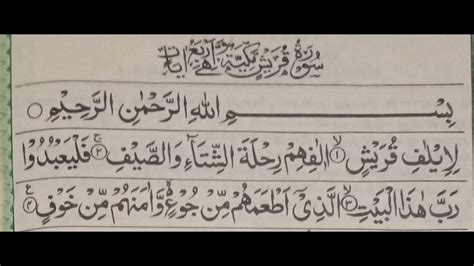 سُوْرَةُ قُرَيْشٍ مَّكِّيَّةٌ وَّهِيَ اَرْبَعُ اٰيَاتٍ
بِسْمِ اللهِ الرَّحْمٰنِ الرَّحِيْمِ
لِاِيْلٰفِ قُرَيْشٍ ۙ﴿۱﴾ اٖلٰفِهِمْ رِحْلَةَ الشِّتَآءِ وَالصَّيْفِ ۚ﴿۲﴾ فَلْيَعْبُدُوْا
رَبَّ هٰذَا الْبَيْتِ ۙ﴿۳﴾ الَّذِيْٓ اَطْعَمَهُمْ مِّنْ جُوْعٍ ۙ۬ وَّاٰمَنَهُمْ مِّنْ خَوْفٍ ﴿۴﴾